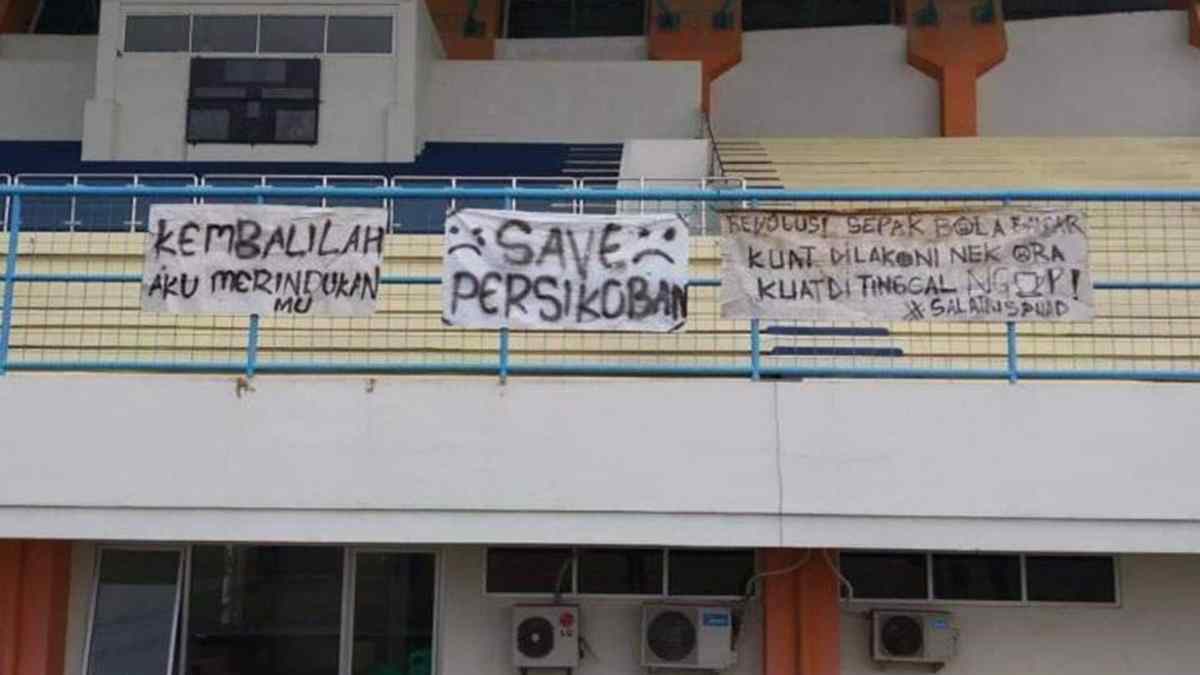 KEMBALILAH
AKU MERINDUKAN
MU
SAVE
PERSIKOBAN
REVOLUSI SEPAK BOLA BANJAR
KUAT DILAKONI NEK ORA
KUAT DI TINGGAL NGOPI!
LG